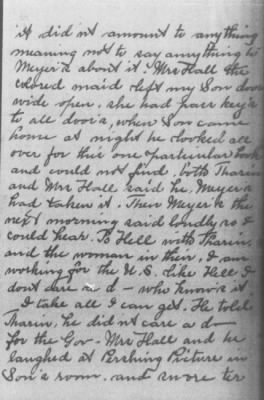 it did nt amount to anything
meaning not to say anything to
Meyer's about it. Mrs Hall the
colored maid left my Son door
wide open, she had pass key's
to all door's, when Son came
home at night he looked all
over for this one particular book
and could not find. both Tharin
and Mrs Hall said he Meyer's
had taken it. Then Meyer's the
next morning said loudly so I
could hear. To Hell with Tharin,
and the woman in their, I am
working for the U.S. like Hell I
don't care a d- who know's it
I take all I can get. He told
Tharin, he did nt care a d-
for the Gov- Mrs Hall and he
laughed at Pershing Picture in
Son's room. and swore ter